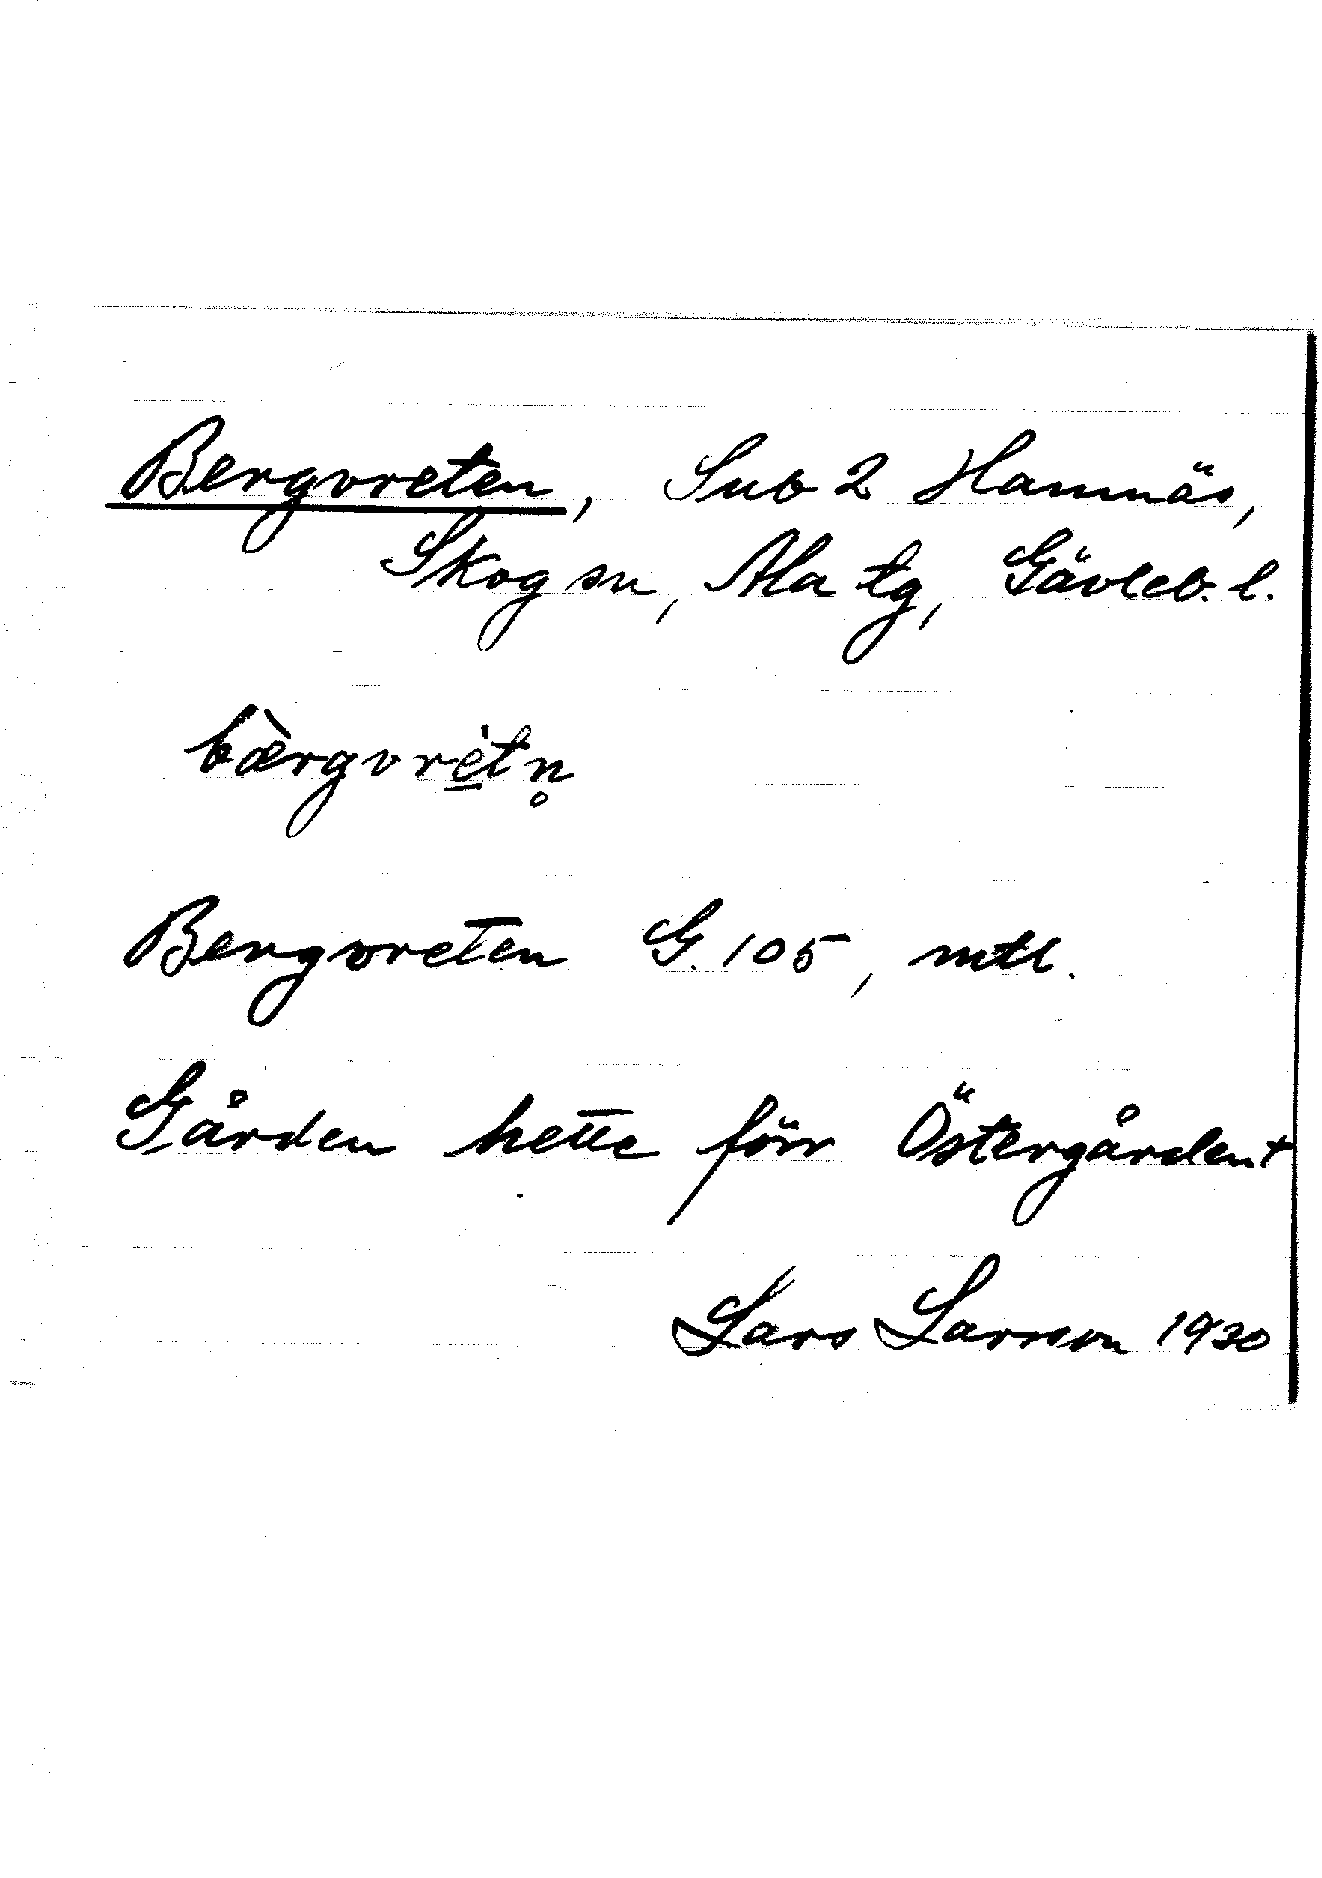 Bergvreten, Sub 2 Hamnäs,
Skog sn, Ala tg, Gävleb. l.
bæ̀rgvrètn̥
Bergvreten G. 105, mtl.
Gården hette förr Östergården +
Lars Larsson 1930